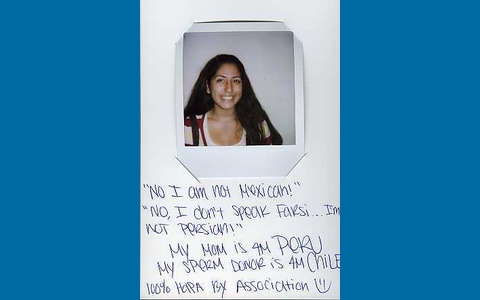 "No I am not Mexican!"
"No, I don't speak Farsi... Im
not Persian!"
My mom is 4M Peru
My sperm donor is 4M Chile
100% Hapa by Association